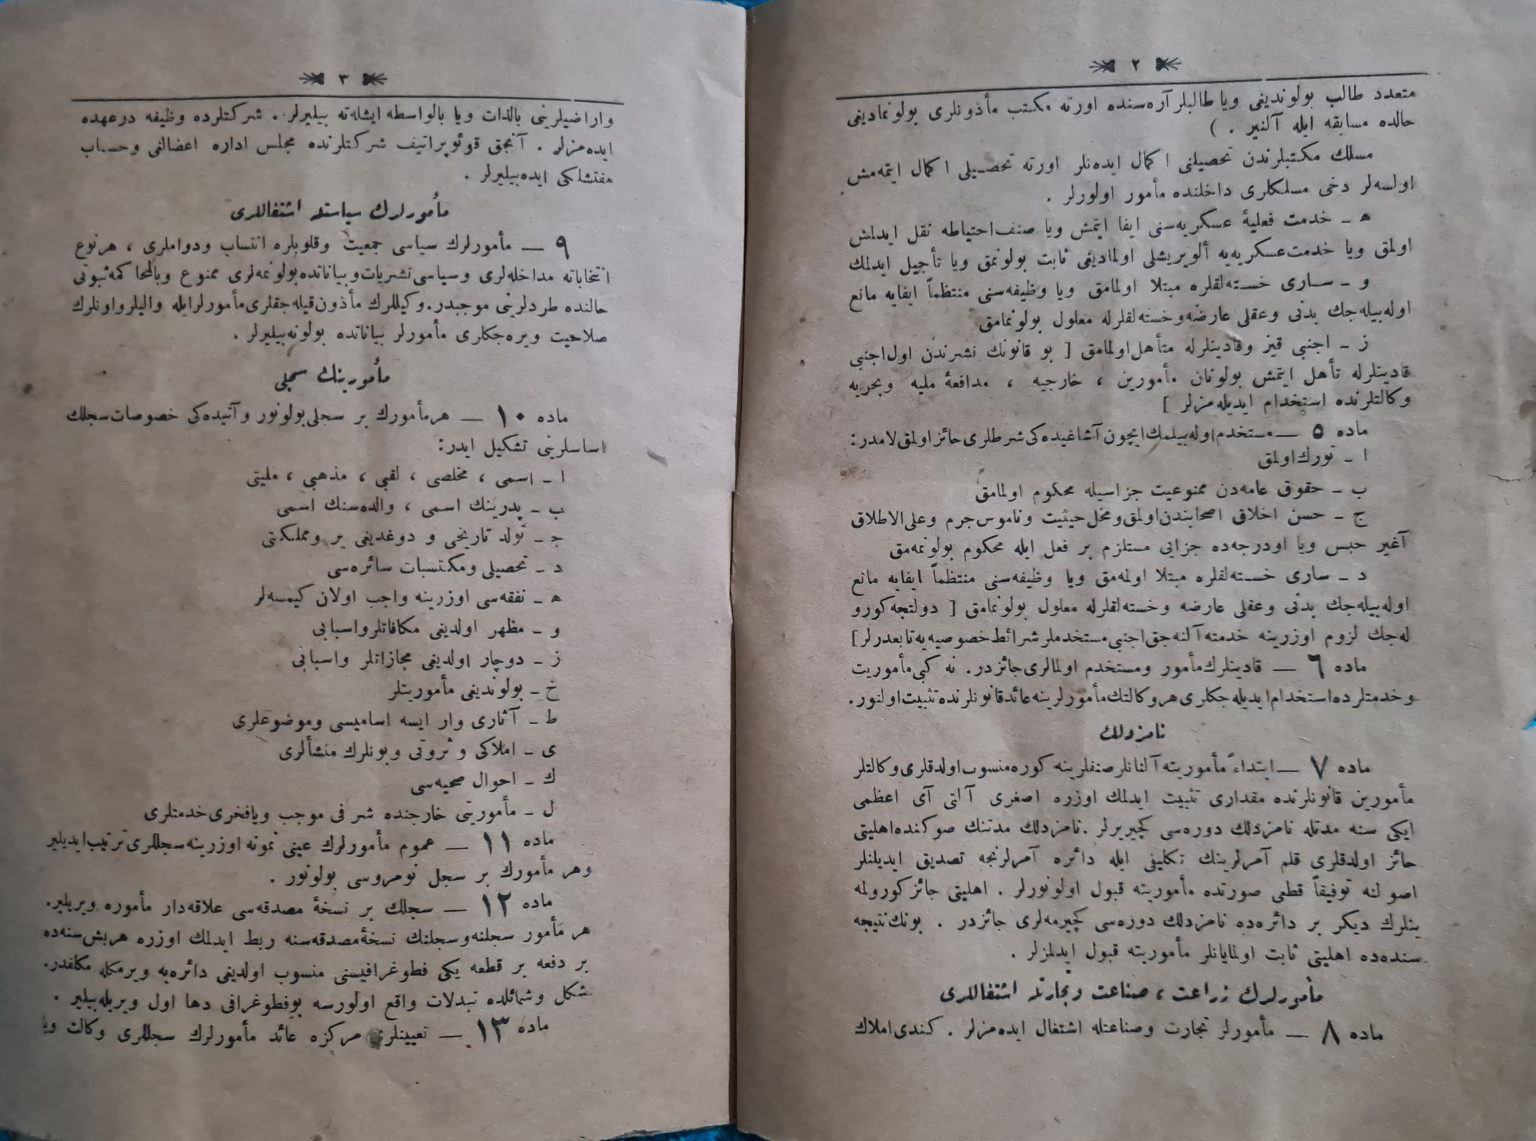 ٢
متعدد طالب بولوندیغی ویا طالبلر آره‌سنده اورته مکتب مأذونلری بولونمادیغی
حالده مسابقه ایله آلنیر . )
مسلك مکتبلرندن تحصیلنی اکمال ایده‌نلر اورته تحصیلی اکمال ایتمه‌مش
اولسه‌لر دخی مسلکلری داخلنده مأمور اولورلر .
ه ـ خدمت فعلیهٔ عسکریه‌سنی ایفا ایتمش ویا صنف احتیاطه نقل ایدلمش
اولمق ویا خدمت عسکریه‌یه ألویریشلی اولمادیغی ثابت بولونمق ویا تأجیل ایدلمك
و ـ ساری خسته‌لقلره مبتلا اولمامق ویا وظیفه‌سنی منتظماً ایفایه مانع
اوله‌بیله‌جك بدنی وعقلی عارضه وخسته‌لقلرله معلول بولونمامق
ز ـ اجنبی قیز وقادینلرله متأهل اولمامق [ بو قانونك نشرندن اول اجنبی
قادینلرله تأهل ایتمش بولونان مأمورین ، خارجیه ، مدافعهٔ ملیه وبحریه
وکالتلرنده استخدام ایدیله‌مزلر ]
ماده ٥ ــ مستخدم اوله‌بیلمك ایچون آشاغیده‌کی شرطلری حائز اولمق لازمدر :
ا ـ تورك اولمق
ب ـ حقوق عامه‌دن ممنوعیت جزاسیله محکوم اولمامق
ج ـ حسن اخلاق اصحابندن اولمق ومخل حیثیت وناموس جرم وعلی الاطلاق
آغیر حبس ویا اودرجه‌ده جزایی مستلزم بر فعل ایله محکوم بولونمه‌مق
د ـ ساری خسته‌لقلره مبتلا اولمه‌مق ویا وظیفه‌سنی منتظماً ایفایه مانع
اوله‌بیله‌جك بدنی وعقلی عارضه وخسته‌لقلرله معلول بولونمامق [ دولتجه کورو
له‌جك لزوم اوزرینه خدمته آلنه‌جق اجنبی مستخدملر شرائط خصوصیه‌یه تابعدرلر ]
ماده ٦ ــ قادینلرك مأمور ومستخدم اولمالری جائزدر. نه کبی مأموریت
وخدمتلرده استخدام ایدیله‌جکلری هر وکالتك مأمورلرینه عائد قانونلرنده تثبیت اولنور.
نامزدلك
ماده ٧ ــ ابتداءً مأموریته آلنانلر صنفلرینه کوره منسوب اولدقلری وکالتلر
مأمورین قانونلرنده مقداری تثبیت ایدلمك اوزره اصغری آلتی آی اعظمی
ایکی سنه مدتله نامزدلك دوره‌سی کچیریرلر . نامزدلك مدتنك صوکنده اهلیتی
حائز اولدقلری قلم آمرلرینك تکلیفی ایله دائره آمرلرنجه تصدیق ایدیلنلر
اصولنه توفیقاً قطعی صورتده مأموریته قبول اولونورلر . اهلیتی حائز کورولمه
ینلرك دیکر بر دائره‌ده نامزدلك دوره‌سی کچیرمه‌لری جائزدر . بونك نتیجه
سنده‌ده اهلیتی ثابت اولمایانلر مأموریته قبول ایدلمزلر .
مأمورلرك زراعت ، صناعت وتجارتله اشتغاللری
ماده ٨ ــ مأمورلر تجارت وصناعتله اشتغال ایده‌مزلر . کندی املاك
٣
واراضیلرینی بالذات ویا بالواسطه ایشله‌ته بیلیرلر . شرکتلرده وظیفه درعهده
ایده‌مزلر . آنجق قوئوپراتیف شرکتلرنده مجلس اداره اعضالغی وحساب
مفتشلکی ایده‌بیلیرلر .
مأمورلرك سیاستله اشتغاللری
٩ ــ مأمورلرك سیاسی جمعیت وقلوبلره انتساب ودواملری ، هرنوع
انتخاباته مداخله‌لری وسیاسی نشریات وبیاناتده بولونمه‌لری ممنوع وبالمحاکمه ثبوتی
حالنده طردلرینی موجبدر. وکیللرك مأذون قیله‌جقلری مأمورلر ایله والیلر واونلرك
صلاحیت ویره‌جکلری مأمورلر بیاناتده بولونه‌بیلیرلر .
مأمورینك سجلی
ماده ١٠ ــ هر مأمورك بر سجلی بولونور وآتیده‌کی خصوصات سجلك
اساسلرینی تشکیل ایدر :
ا ـ اسمی ، مخلصی ، لقبی ، مذهبی ، ملیتی
ب ـ پدرینك اسمی ، والده‌سنك اسمی
ج ـ تولد تاریخی و دوغدیغی یر ومملکتی
د ـ تحصیلی ومکتسبات سائره‌سی
ه ـ نفقه‌سی اوزرینه واجب اولان کیمسه‌لر
و ـ مظهر اولدیغی مکافاتلر واسبابی
ز ـ دوچار اولدیغی مجازاتلر واسبابی
خ ـ بولوندیغی مأموریتلر
ط ـ آثاری وار ایسه اسامیسی وموضوعلری
ی ـ املاکی و ثروتی وبونلرك منشألری
ك ـ احوال صحیه‌سی
ل ـ مأموریتی خارجنده شرفی موجب ویا فخری خدمتلری
ماده ١١ ــ عموم مأمورلرك عینی نمونه اوزرینه سجللری ترتیب ایدیلیر
وهر مأمورك بر سجل نومروسی بولونور .
ماده ١٢ ــ سجلك بر نسخهٔ مصدقه‌سی علاقه‌دار مأموره ویریلیر.
هر مأمور سجلنه وسجلنك نسخهٔ مصدقه‌سنه ربط ایدلمك اوزره هر بش سنه‌ده
بر دفعه بر قطعه یکی فطوغرافیسنی منسوب اولدیغی دائره‌یه ویرمکله مکلفدر.
شکل وشمائلده تبدلات واقع اولورسه بو فطوغرافی دها اول ویریله‌بیلیر .
ماده ١٣ ــ تعیینلری مرکزه عائد مأمورلرك سجللری وکالت ویا